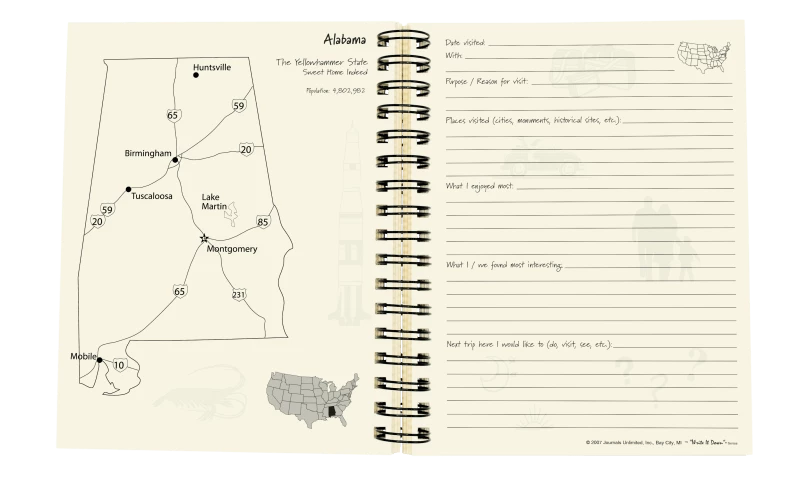 Alabama
The Yellowhammer State
Sweet Home Indeed
Population: 4,802,982
Huntsville
65
59
Birmingham
20
Tuscaloosa
Lake
Martin
59
20
85
Montgomery
65
231
Mobile
10
Date visited:
With:
Purpose / Reason for visit:
Places visited (cities, monuments, historical sites, etc.):
What I enjoyed most:
What I / we found most interesting:
Next trip here I would like to (do, visit, see, etc.):
? ? ?
© 2007 Journals Unlimited, Inc., Bay City, MI ~ "Write It Down" Series